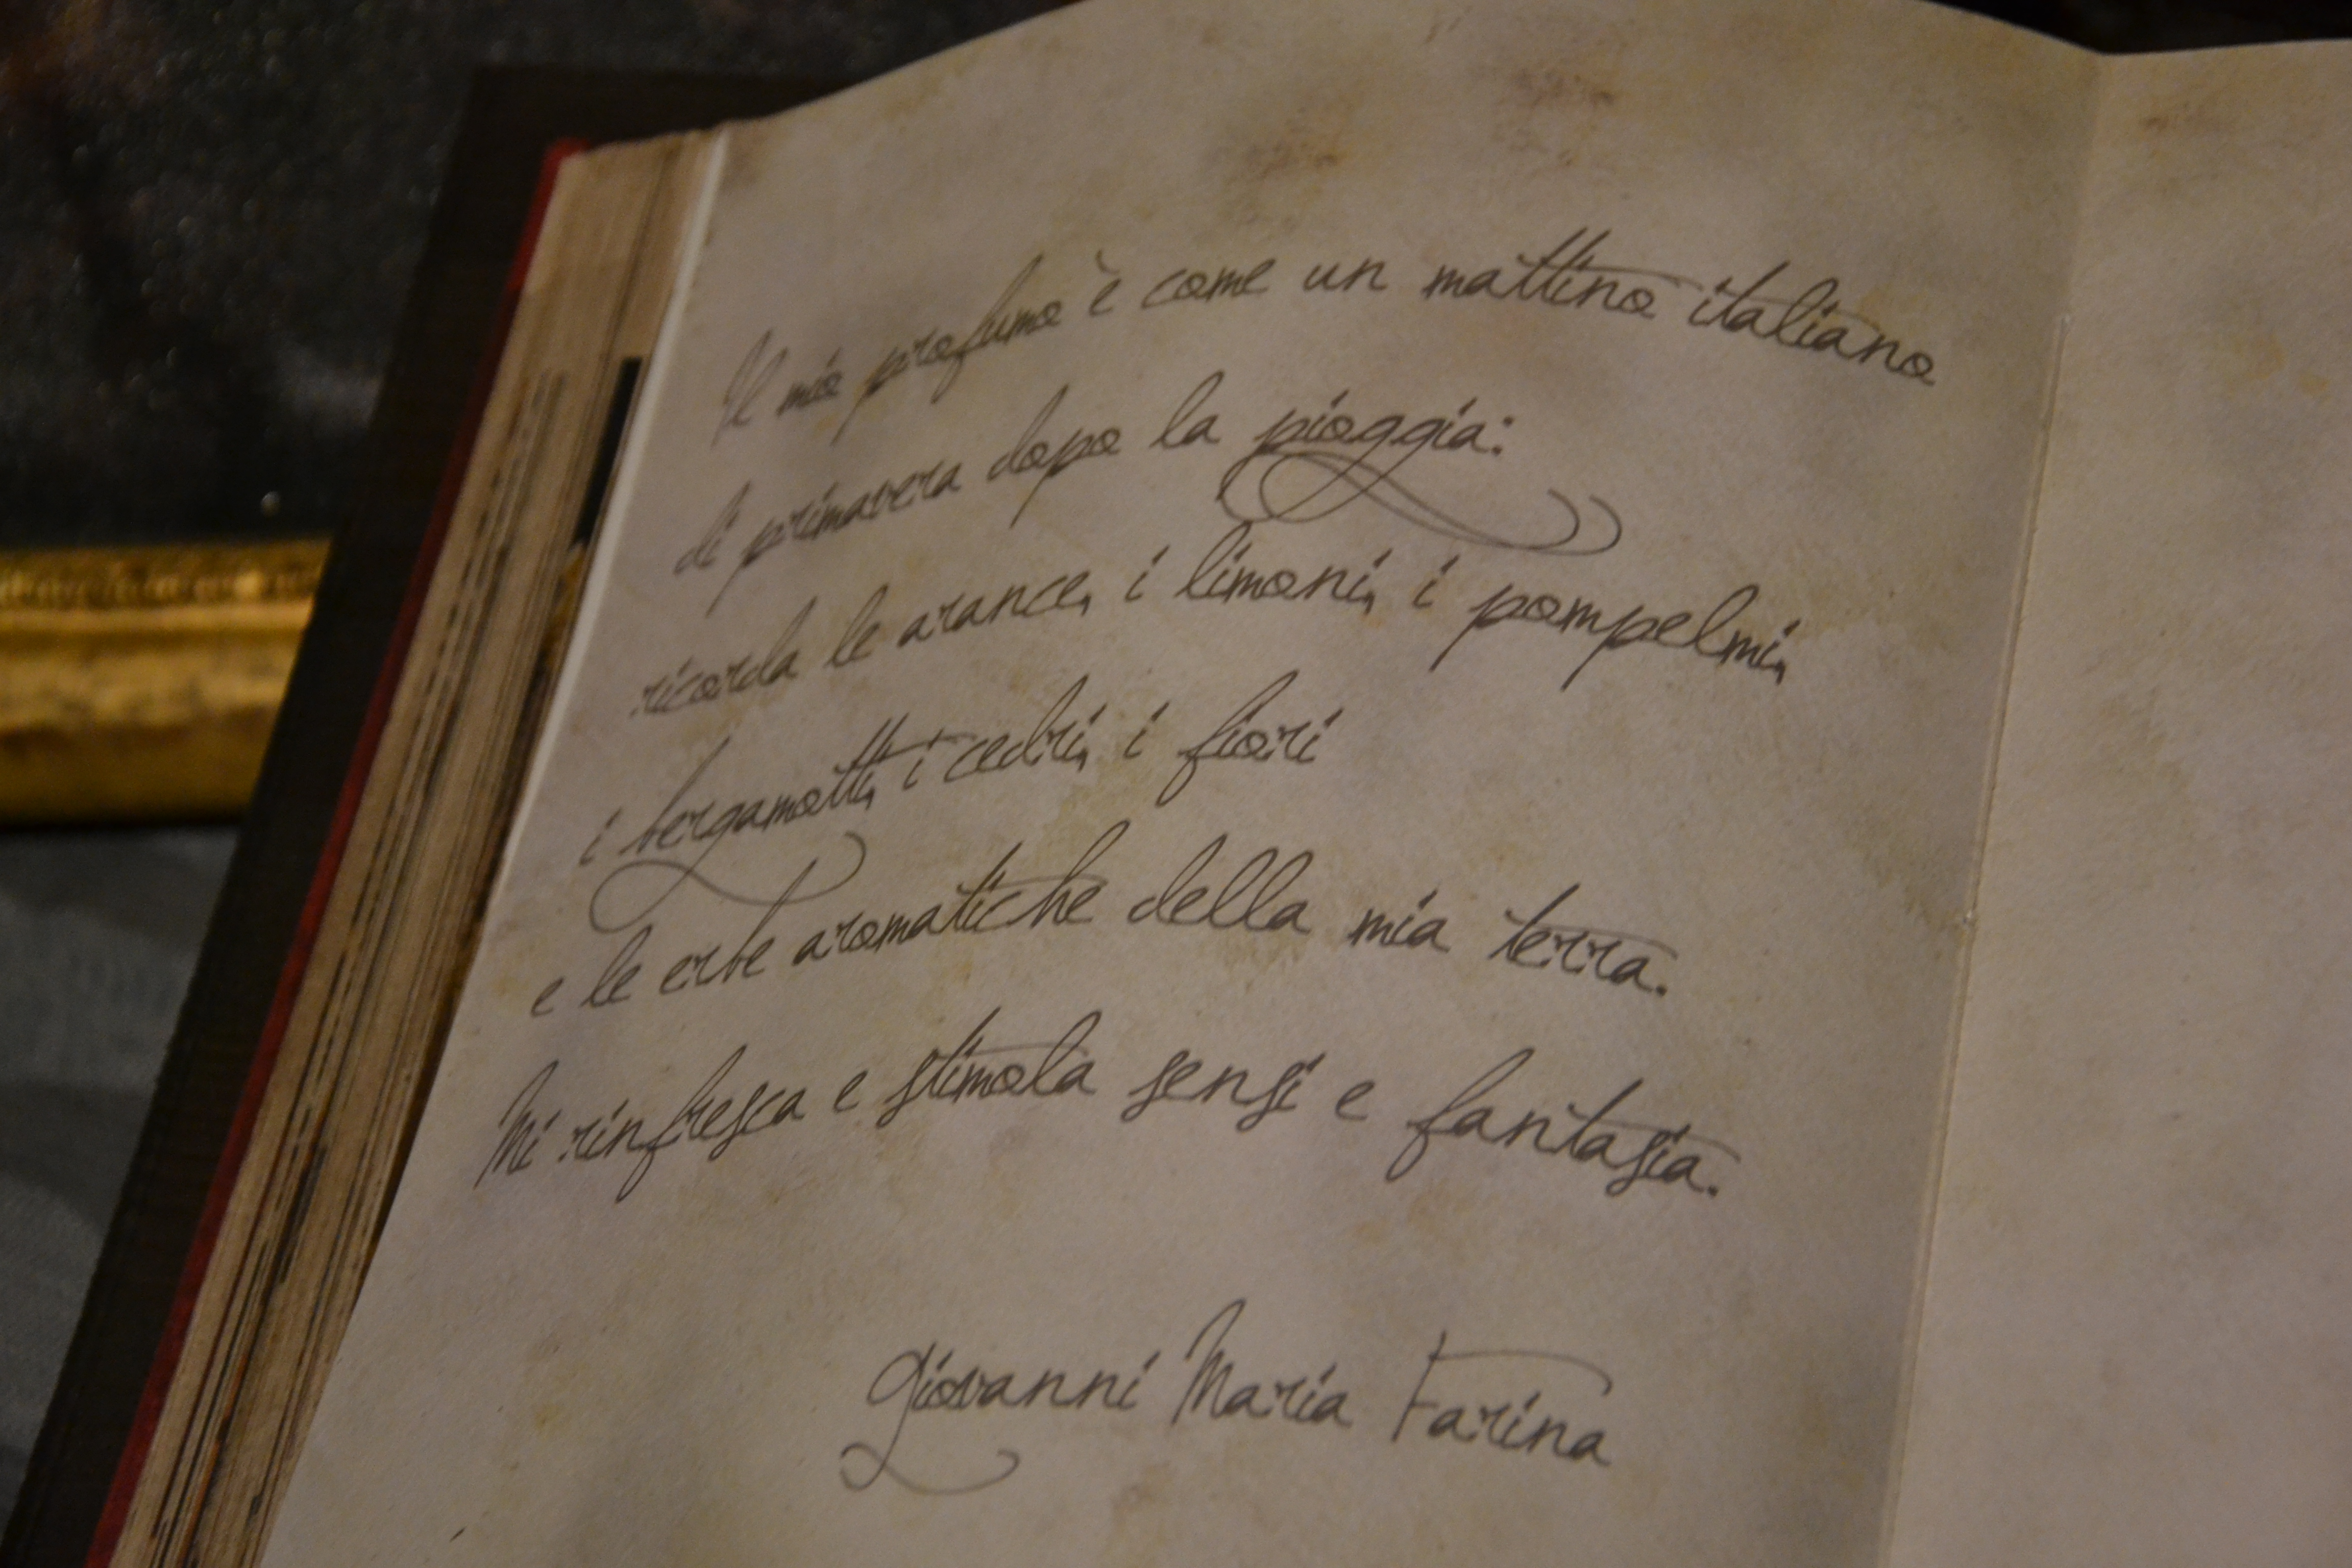 Il mio profumo è come un mattino italiano
di primavera dopo la pioggia:
ricorda le arance, i limoni, i pompelmi,
i bergamotti, i cedri, i fiori
e le erbe aromatiche della mia terra.
Mi rinfresca e stimola sensi e fantasia.
Giovanni Maria Farina